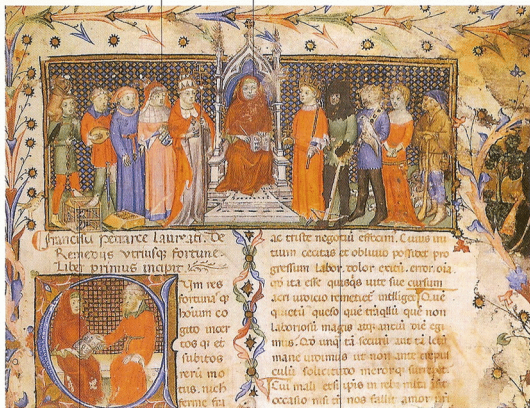 Francisci petrarce laureati. De
Remedijs utriusque fortune.
Liber primus incipit.
Cum res
fortunasque
hominum co
gito incer
tosque et
subitos
rerum mo
tus. nich
ferme fra
ac triste negotium effecimus. Cuius ini
tium cecitas et oblivio possidet pro
gressum labor. dolor exitum. error omnia
quod ita esse quisquis vite sue cursum
acri iudicio remetietur intelliget. Que
quietum queso que tranquillum que non
laboriosum magis atque anxium diem egi
mus. Quod unquam tam securum aut tam letum
mane vidimus ut non ante
culum solicitudo merorque surreperet.
Cui mali etsi ipsis in rebus multa sit
occasio nisi tamen nos fallit amor pro